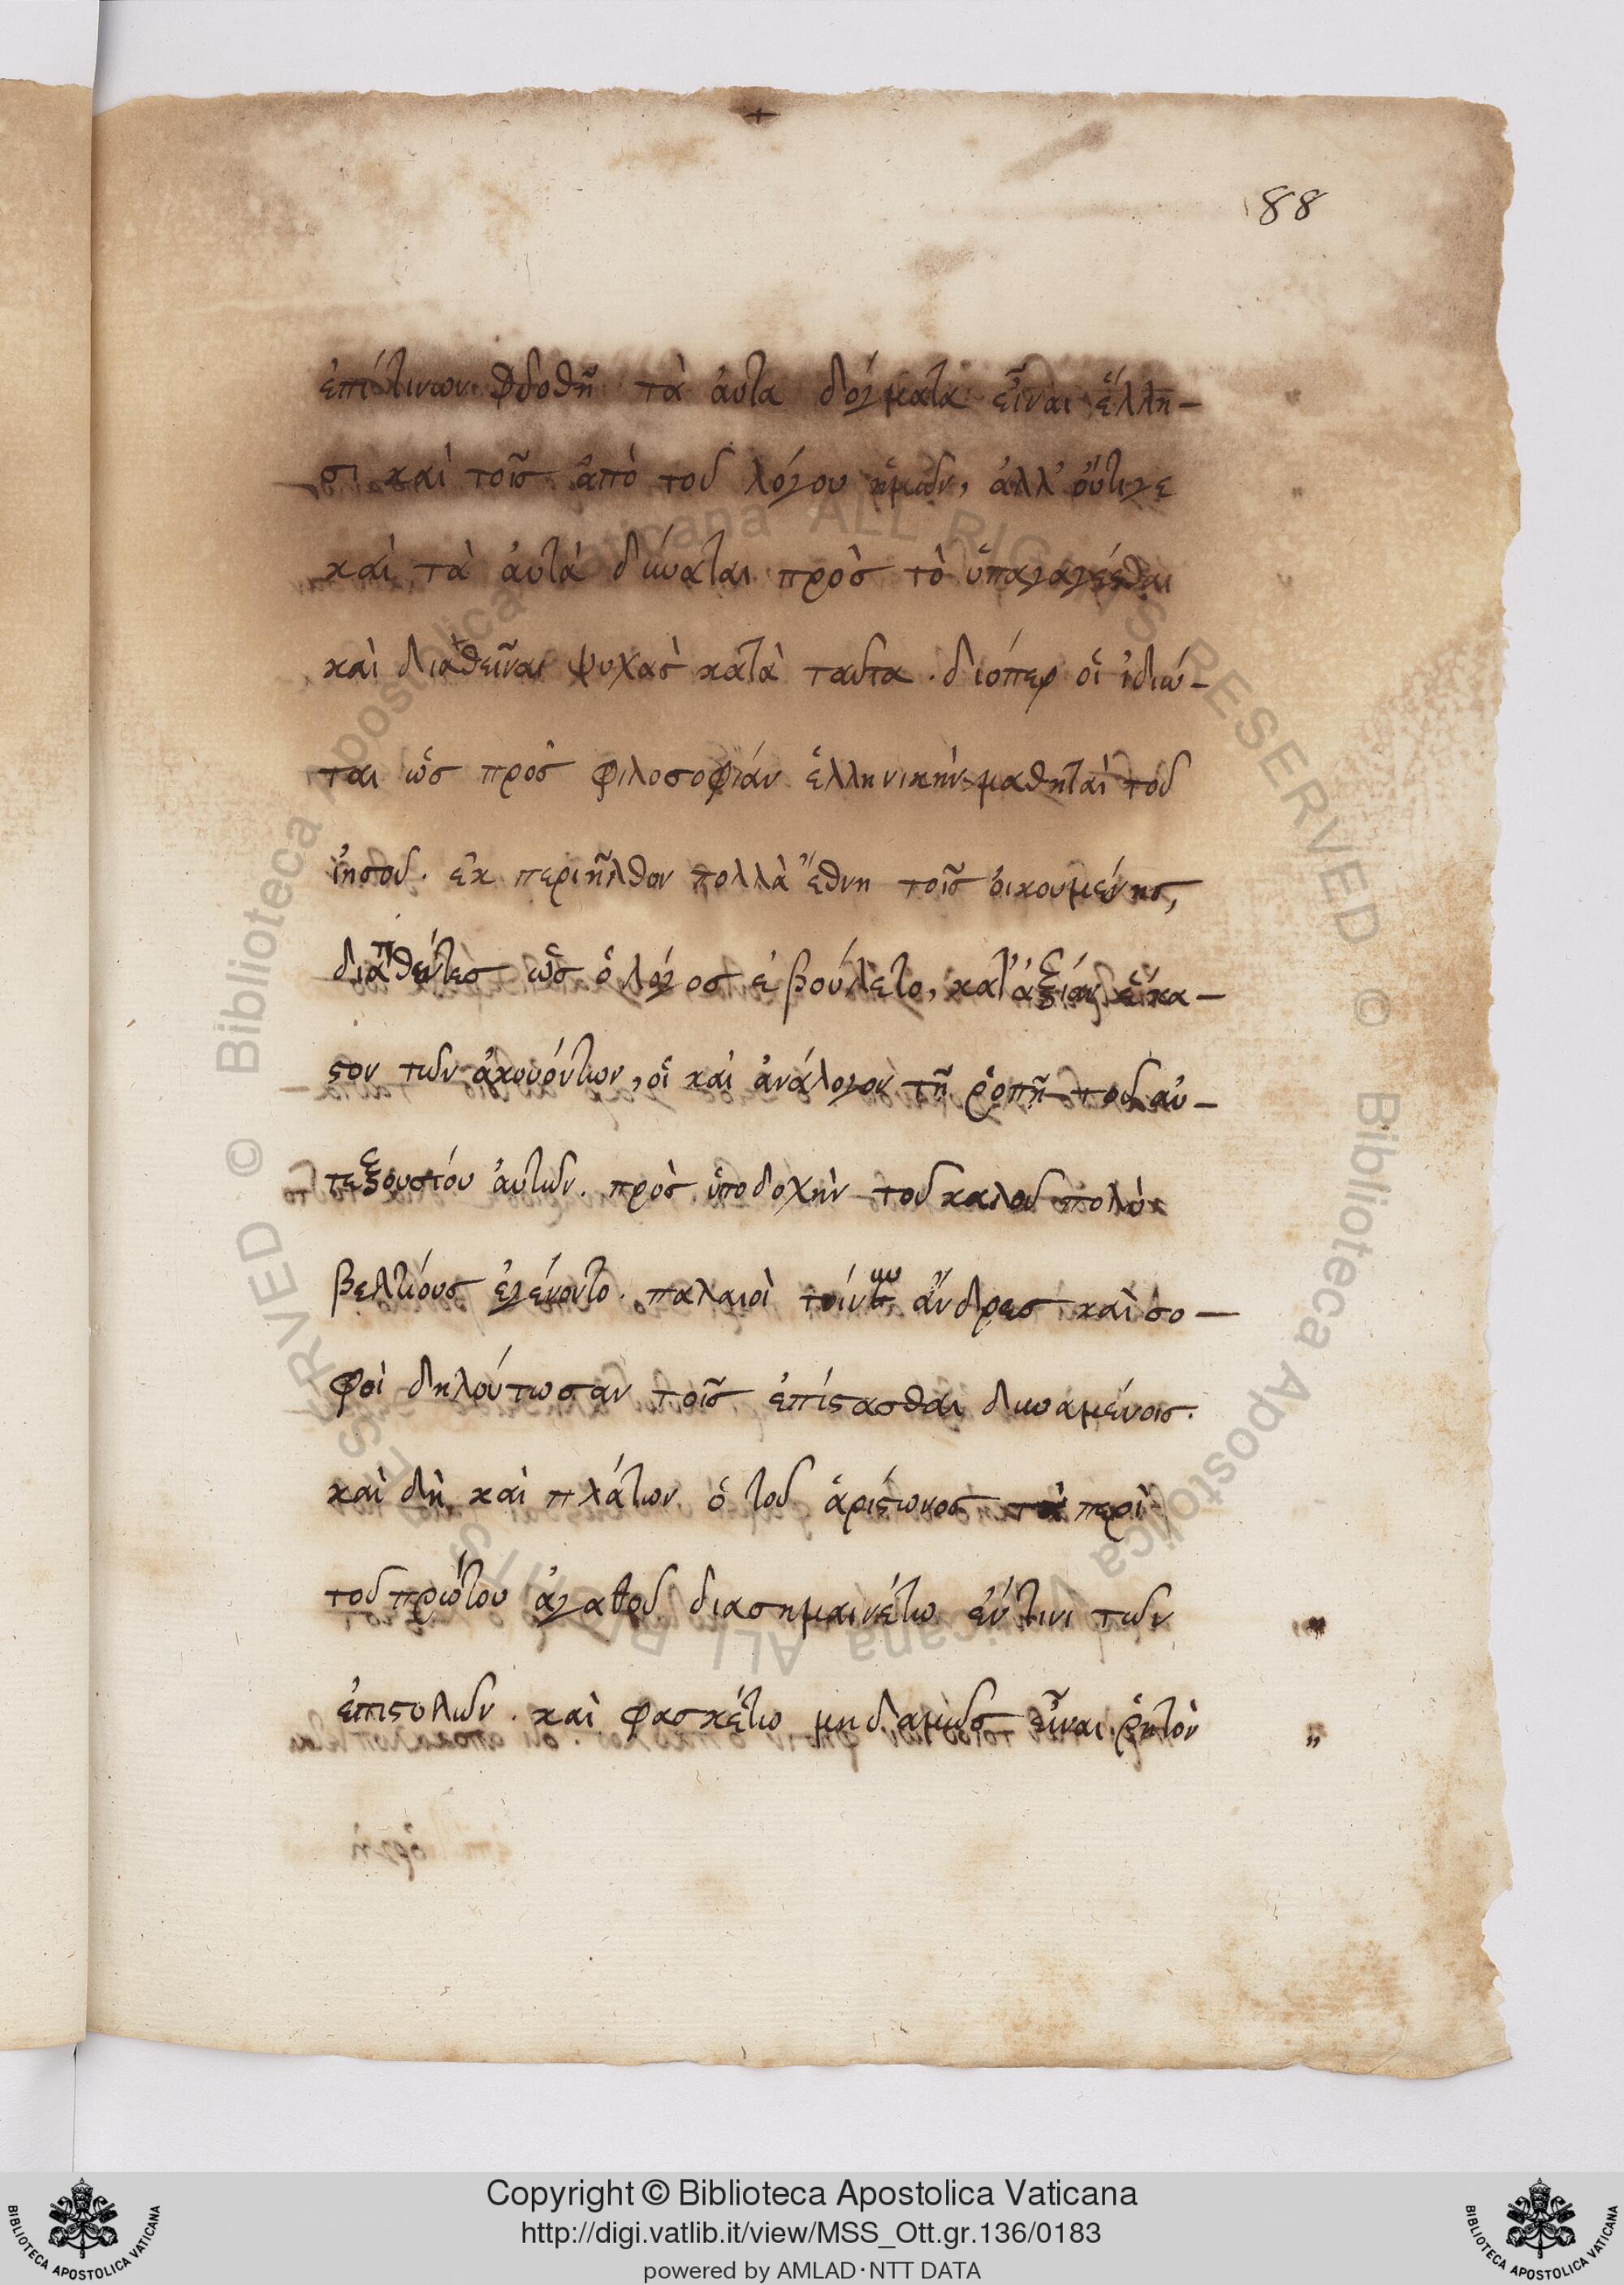 88
ἐπίτινων δοθῆ τὰ ἀυτα δόγματα εἶναι ἕλλη-
σι καὶ τοῖσ ἀπὸ τοῦ λόγου ἡμῶν, ἀλλ' οὔτιγε
καὶ τὰ ἀυτὰ δύναται πρὸσ τὸ ὑπαγαγέσθαι
καὶ διαθεῖναι ψυχὰσ κατὰ ταῦτα. διόπερ οἱ ἰδιώ-
ται ὡσ πρὸσ φιλοσοφίαν ἑλληνικὴν μαθηταὶ τοῦ
ἰησοῦ. ἐκ περιῆλθον πολλὰ ἔθνη τοῖσ ὀικουμένησ,
διατιθέντεσ ὡσ ὁ λόγοσ ἐβούλετο, κατ' ἀξίαν ἕκα-
στον τῶν ἀκουόντων, οἳ καὶ ἀνάλογον τῆ ῥοπῆ τοῦ αυ-
τεξουσίου ἀυτῶν. πρὸσ ὑποδοχὴν τοῦ καλοῦ πολὺ
βελτίουσ ἐγένοντο. παλαιοὶ τοίνυν ἄνδρεσ καὶ σο-
φοὶ δηλούτωσαν τοῖσ ἐπίστασθαι δυναμένοισ.
καὶ δὴ καὶ πλάτων ὁ τοῦ ἀρίστωνοσ τὰ περὶ
τοῦ πρώτου ἀγαθοῦ διασημαινέτω ἐν τινι τῶν
ἐπιστολῶν. καὶ φασκέτω μηδαμῶσ εἶναι ῥητὸν
Copyright © Biblioteca Apostolica Vaticana
http://digi.vatlib.it/view/MSS_Ott.gr.136/0183
powered by AMLAD·NTT DATA
BIBLIOTECA APOSTOLICA VATICANA
BIBLIOTECA APOSTOLICA VATICANA